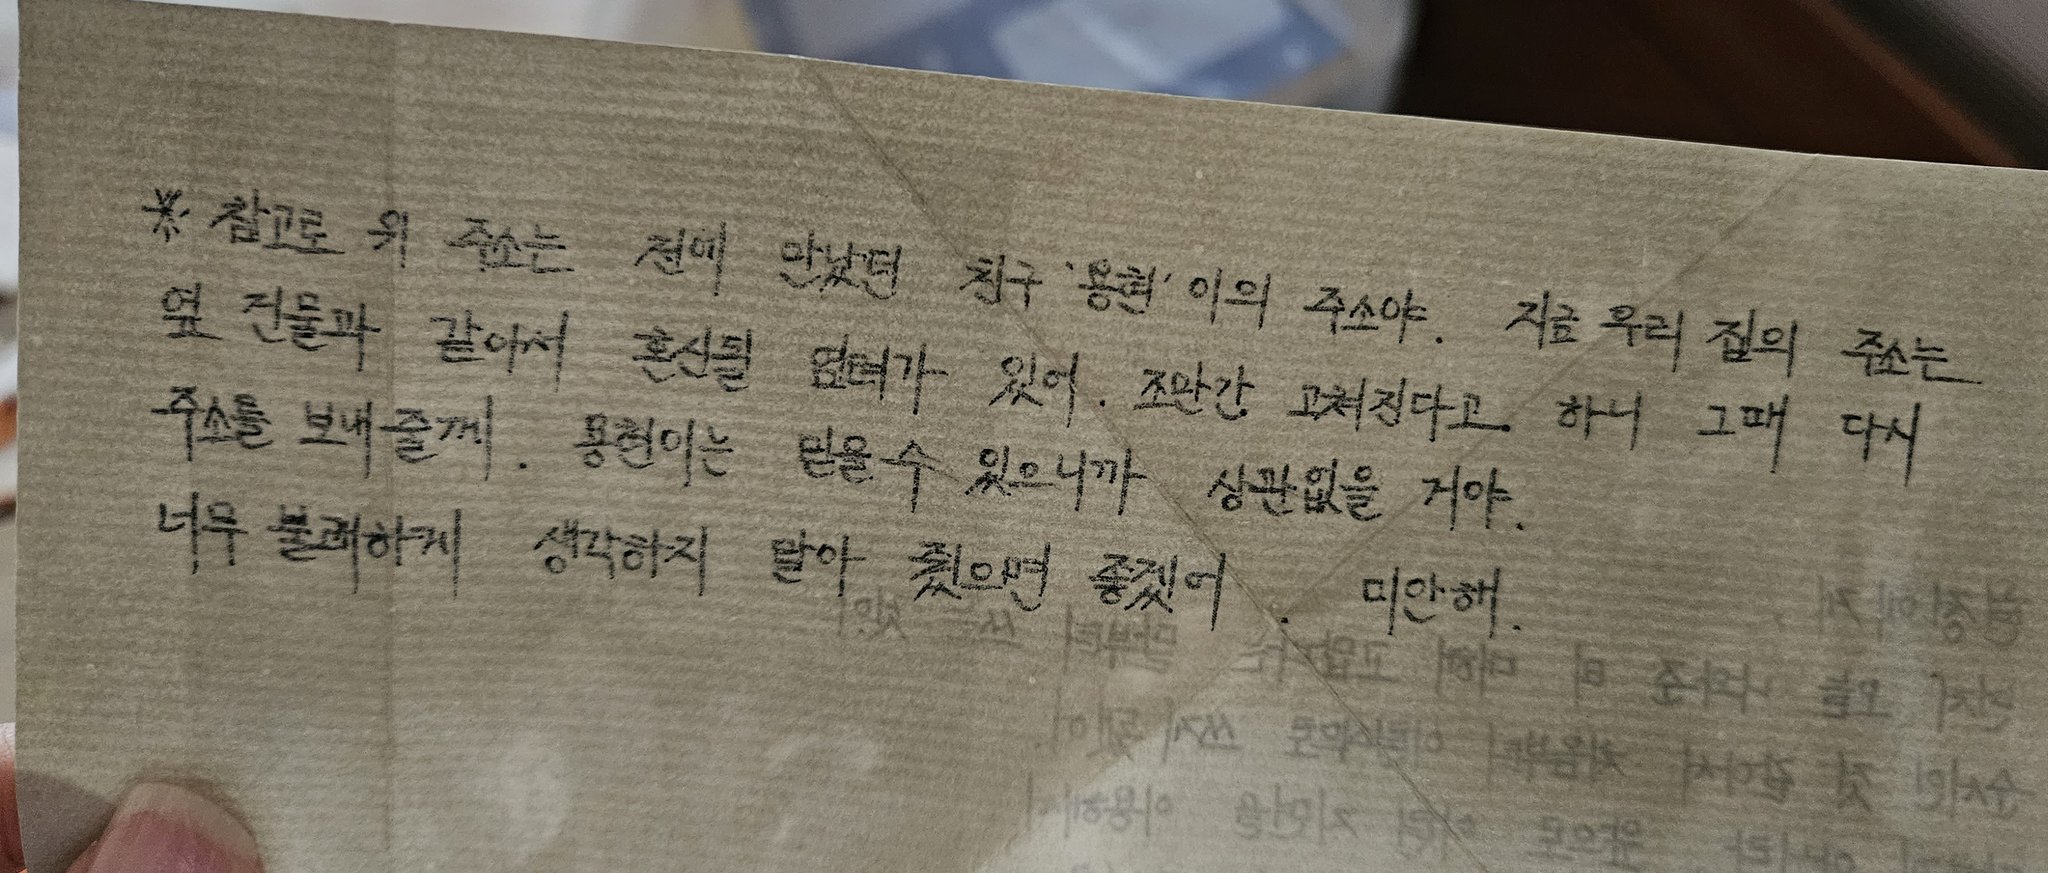 ※ 참고로 위 주소는 전에 만났던 친구 '용현' 이의 주소야. 지금 우리 집의 주소는
옆 건물과 같아서 혼신될 염려가 있어. 조만간 고쳐진다고 하니 그때 다시
주소를 보내줄께. 용현이는 믿을 수 있으니까 상관없을 거야.
너무 불례하게 생각하지 말아 줬으면 좋겠어. 미안해.